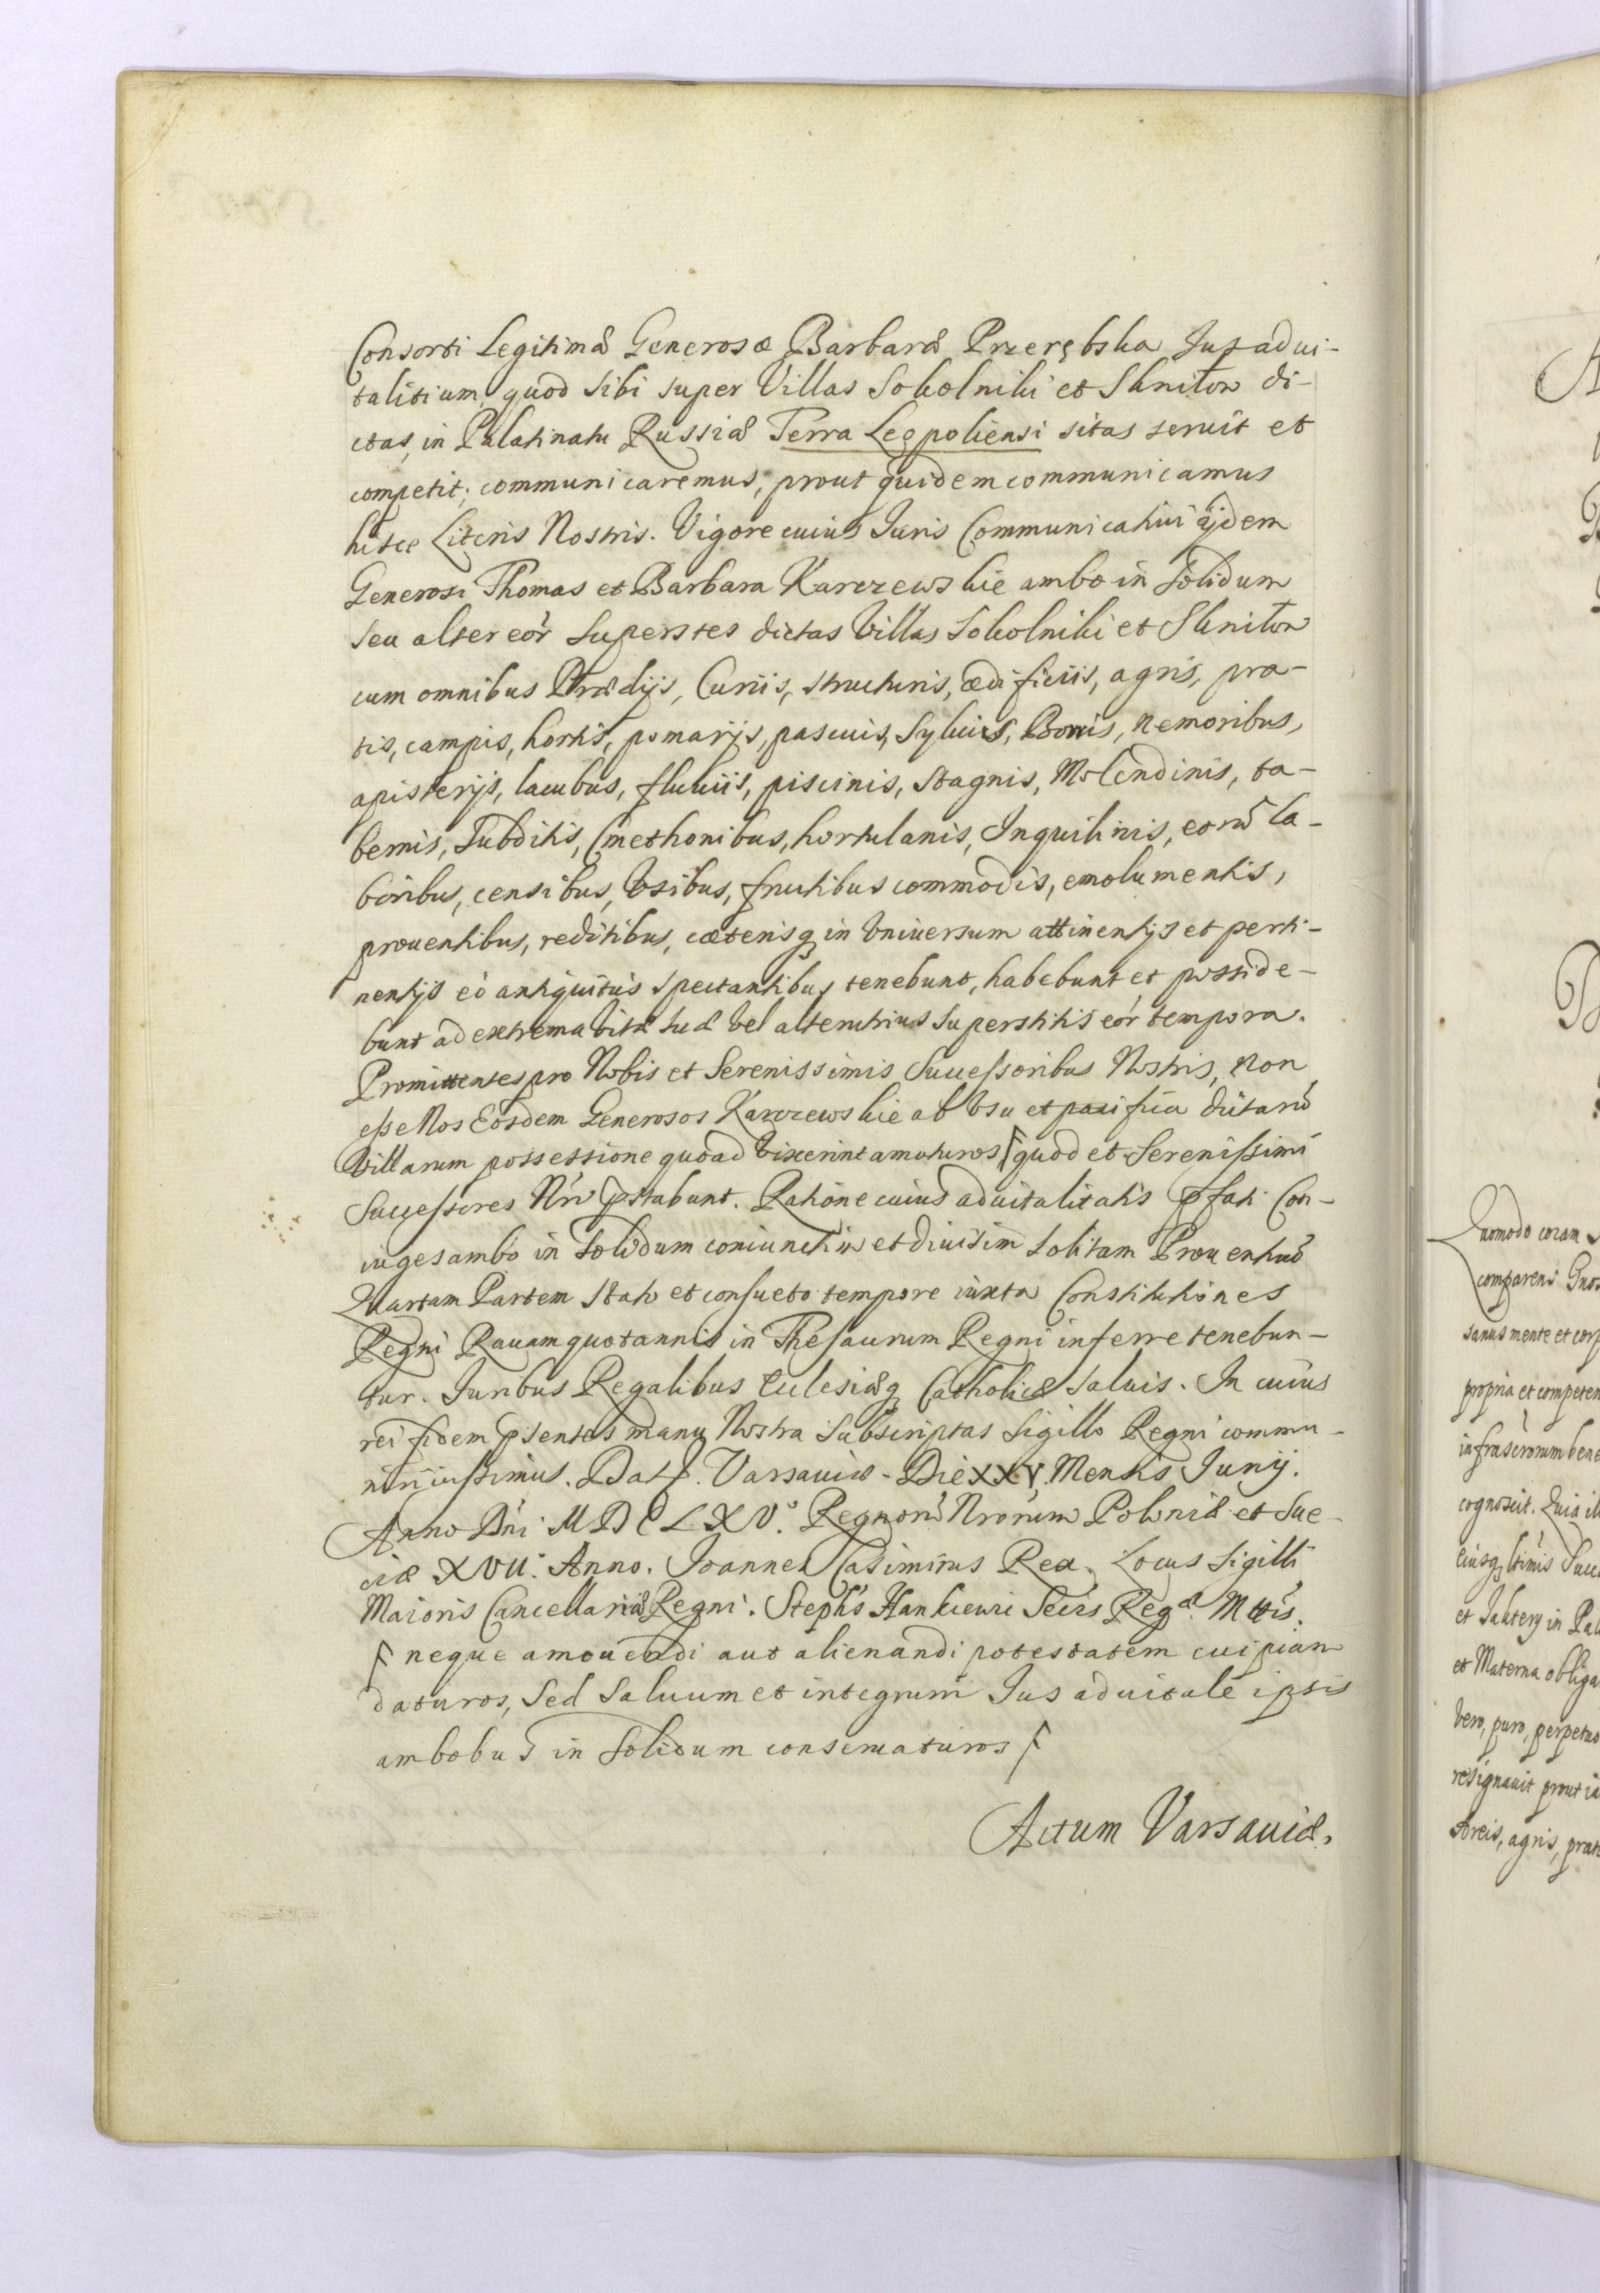 Consorti Legitimæ Generosæ Barbaræ Przerębska Jus adui-
talitium, quod sibi super Villas Sokolniki et Skniłow di-
ctas, in Palatinatu Russiæ Terra Leopoliensi sitas seruit et
competit; communicaremus, prout quidem communicamus
hisce Literis Nostris. Vigore cuius Juris Communicatiui ijdem
Generosi Thomas et Barbara Karczewskie ambo in solidum
seu alter eor̃ Superstes dictas Villas Sokolniki et Skniłow
cum omnibus Prædijs, Curiis, structuris, ædificiis, agris, pra-
tis, campis, hortis, pomarijs, pascuis, Syluis, Borris, nemoribus,
apisterijs, lacubus, fluuiis, piscinis, stagnis, Molendinis, ta-
bernis, Subditis, Cmethonibus, hortulanis, Inquilinis, eorũ la-
boribus, censibus, Vsibus, fructibus commodis, emolumentis,
prouentibus, reditibus, cæterisq; in Vniuersum attinentijs et perti-
nentijs eò antiquitùs spectantibus tenebunt, habebunt et posside-
bunt ad extrema Vitæ suæ Vel alterutrius Superstitis eor̃ tempora.
Promittentes pro Nobis et Serenissimis Successoribus Nostris, non
esse Nos Eosdem Generosos Karczewskie ab Vsu et pacifica dictarũ
Villarum possessione quoad Vixerint amoturos quod et Serenissimi
Successores Nr̃i p̃stabunt. Ratione cuius aduitalitatis p̃fati Con-
iuges ambo in Solidum coniunctim et diuisim solitam Prouentuũ
Quartam Partem Statо et consueto tempore iuxta Constitutiones
Regni Rauam quotannis in Thesaurum Regni inferre tenebun-
tur. Juribus Regalibus Ecclesiæq; Catholicæ saluis. In cuius
rei fidem p̃sentes manu Nostra Subscriptas Sigillo Regni commu-
niri iussimus. Dat. Varsauiæ. Die XXV. Mensis Junij.
Anno Dñi MDCLXVº. Regnorũ Nrorum Poloniæ et Sue-
ciæ XVII. Anno. Joannes Casimirus Rex. Locus Sigilli
Maioris Cancellariæ Regni. Steph̃s Hankiewicz Secrs Regæ Mttis.
neque amouendi aut alienandi potestatem cuipiam
daturos, Sed Saluum et integrum Jus aduitale ipsis
ambobus in Solidum conseruaturos
Actum Varsauiæ.
A
Quomodo coram
comparens Gnos
sanus mente et corp
propria et competen
infrascriptorum bene
cognoscit. Quia
eiusq; ltimis Succ
et in Pal
et Materna obliga
Vero, puro, perpetuo
resignauit prout
agris, prat